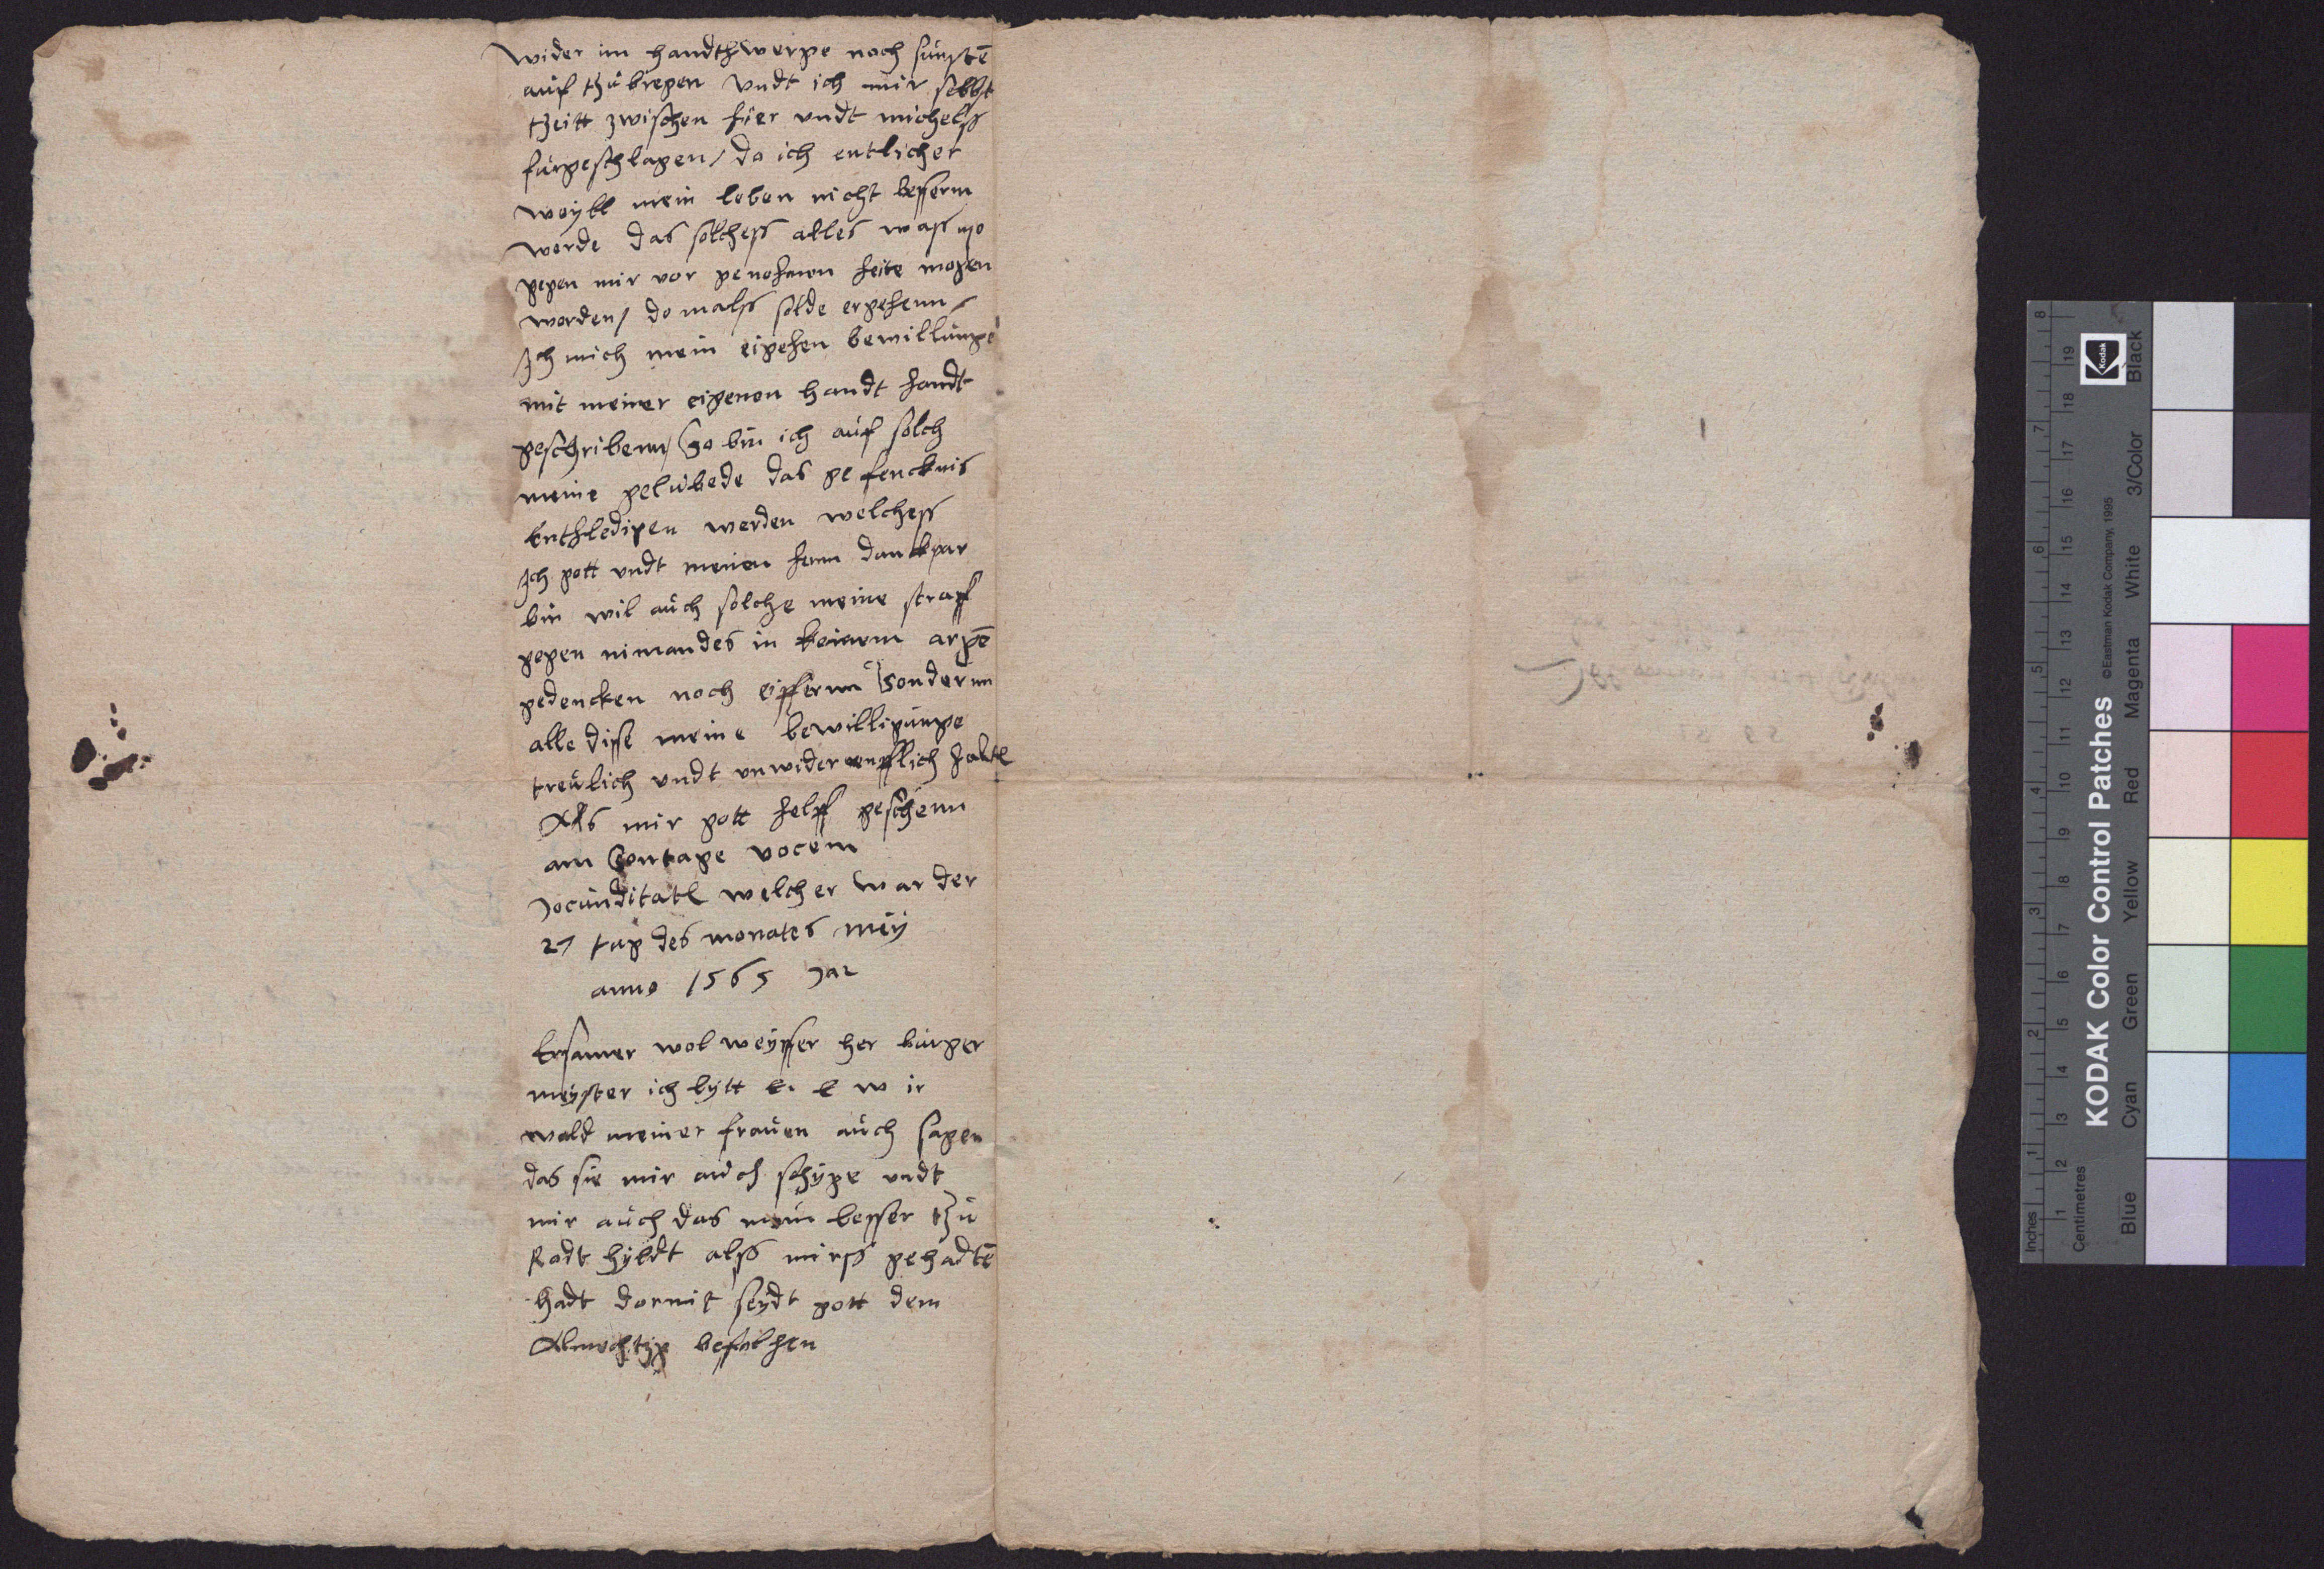 wider im handthwerge noch sunstē
auf tzu bregen vndt ich mir selbst
tzeitt zwischen hier vndt michelß
furgeschlagen / do ich entlicher
weyll mein leben nicht besserm
werde das solchess alles waß
gegen mir vor genohmen heite mogen
worden / do malß solde ergehenn /
Ich mich mein eigehen bewillunge
mit meiner eigenen handt handt
geschribenn / So bin ich auf solch
meine gelubede das gefencknis
enthledigen werden welchess
Ich gott vndt meinen hern danckpar
bin wil auch solche meine straff
gegen nimandes in keinem argē
gedencken noch eiffernn sondernn
alle disse meine bewilligunge
treulich vndt vnwiderrufflich halte
Als mir gott helff geschenn
am Sontage vocem
Jocunditate welcher war der
27 tag des monates mey
anno 1565 Jar
Ersamer wolweysser her burger
meyster ich bytt e. e w ir
wold meiner frauen auch sagen
das sie mir auch schyge vndt
mir auch das mein besser tzu
Radt hyldt alß mirß gehadtē
hadt dormit seydt gott dem
Almechtyg befolhen
KODAK Color Control Patches
©Eastman Kodak Company, 1995
Kodak
Inches 1 2 3 4 5 6 7 8
Centimetres 1 2 3 4 5 6 7 8 9 10 11 12 13 14 15 16 17 18 19
Blue Cyan Green Yellow Red Magenta White 3/Color Black